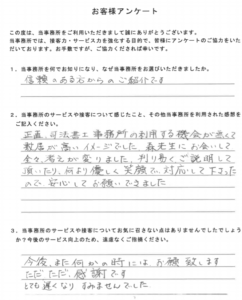 お客様アンケート
この度は、当事務所をご利用いただきまして誠にありがとうございます。
当事務所では、接客力・サービス力を強化する目的で、皆様にアンケートのご協力をいた
だいております。お手数ですが、ご協力くだされば幸いです。
1．当事務所を何でお知りになり、なぜ当事務所をお選びいただきましたか。
信頼のある方からのご紹介です
2．当事務所のサービスや接客について感じたこと、その他当事務所を利用された感想を
ご記入ください。
正直、司法書士事務所の利用する機会が無くて
敷居が高いイメージでした 森先生にお会いして
全く考えが変りました、判り易くご説明して
頂いたり、何より優しく笑顔で対応して下さった
ので、安心してお願いできました
3．当事務所のサービスや接客についてお気に召さない点はありませんでしたでしょう
か？今後のサービス向上のため、遠慮なくご指摘ください。
今後、また何かの時にはお願い致します
ただただ感謝です
とても遅くなりすみませんでした